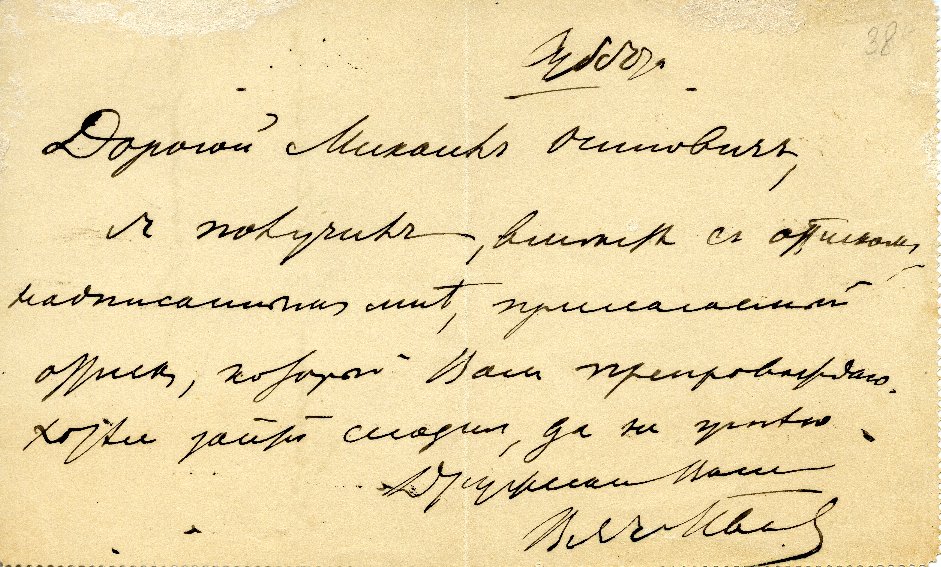 Суббота
38
Дорогой Михаилъ Осиповичъ,
я получилъ, вместе съ оттискомъ,
надписаннымъ мнѣ, прилагаемый
оттискъ, который Вамъ препровождаю.
Хотѣлъ зайти сегодня, да не успѣю.
Дружески Вашъ
Вяч. Иванов